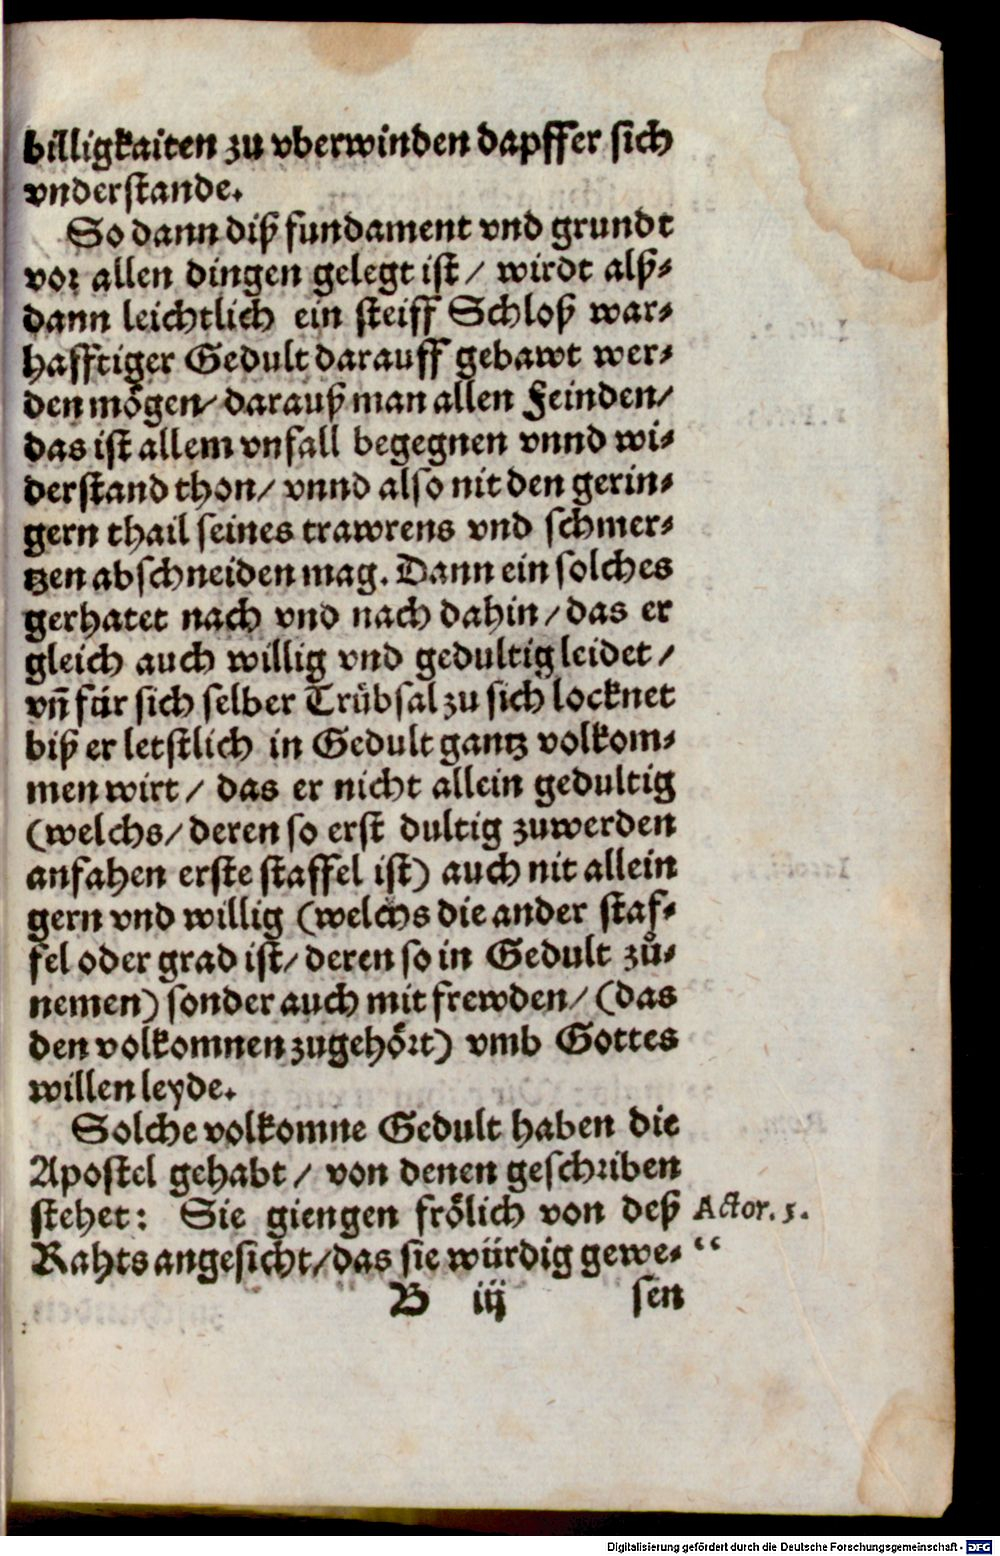 billigkaiten zu vberwinden dapffer sich
vnderstande.
So dann diß fundament vnd grundt
vor allen dingen gelegt ist / wirdt alß⸗
dann leichtlich ein steiff Schloß war⸗
hafftiger Gedult darauff gebawt wer⸗
den mögen / darauß man allen Feinden /
das ist allem vnfall begegnen vnnd wi⸗
derstand thon / vnnd also nit den gerin⸗
gern thail seines trawrens vnd schmer⸗
tzen abschneiden mag. Dann ein solches
gerhatet nach vnd nach dahin / das er
gleich auch willig vnd gedultig leidet /
vn̄ für sich selber Trübsal zu sich locknet
biß er letstlich in Gedult gantz volkom⸗
men wirt / das er nicht allein gedultig
(welchs / deren so erst dultig zuwerden
anfahen erste staffel ist) auch nit allein
gern vnd willig (welchs die ander staf⸗
fel oder grad ist / deren so in Gedult zů⸗
nemen) sonder auch mit frewden / (das
den volkomnen zugehört) vmb Gottes
willen leyde.
Solche volkomne Gedult haben die
Apostel gehabt / von denen geschriben
stehet: Sie giengen frölich von deß Actor. 5.
Rahts angesicht / das sie würdig gewe⸗ “
B iij sen
Digitalisierung gefördert durch die Deutsche Forschungsgemeinschaft - DFG